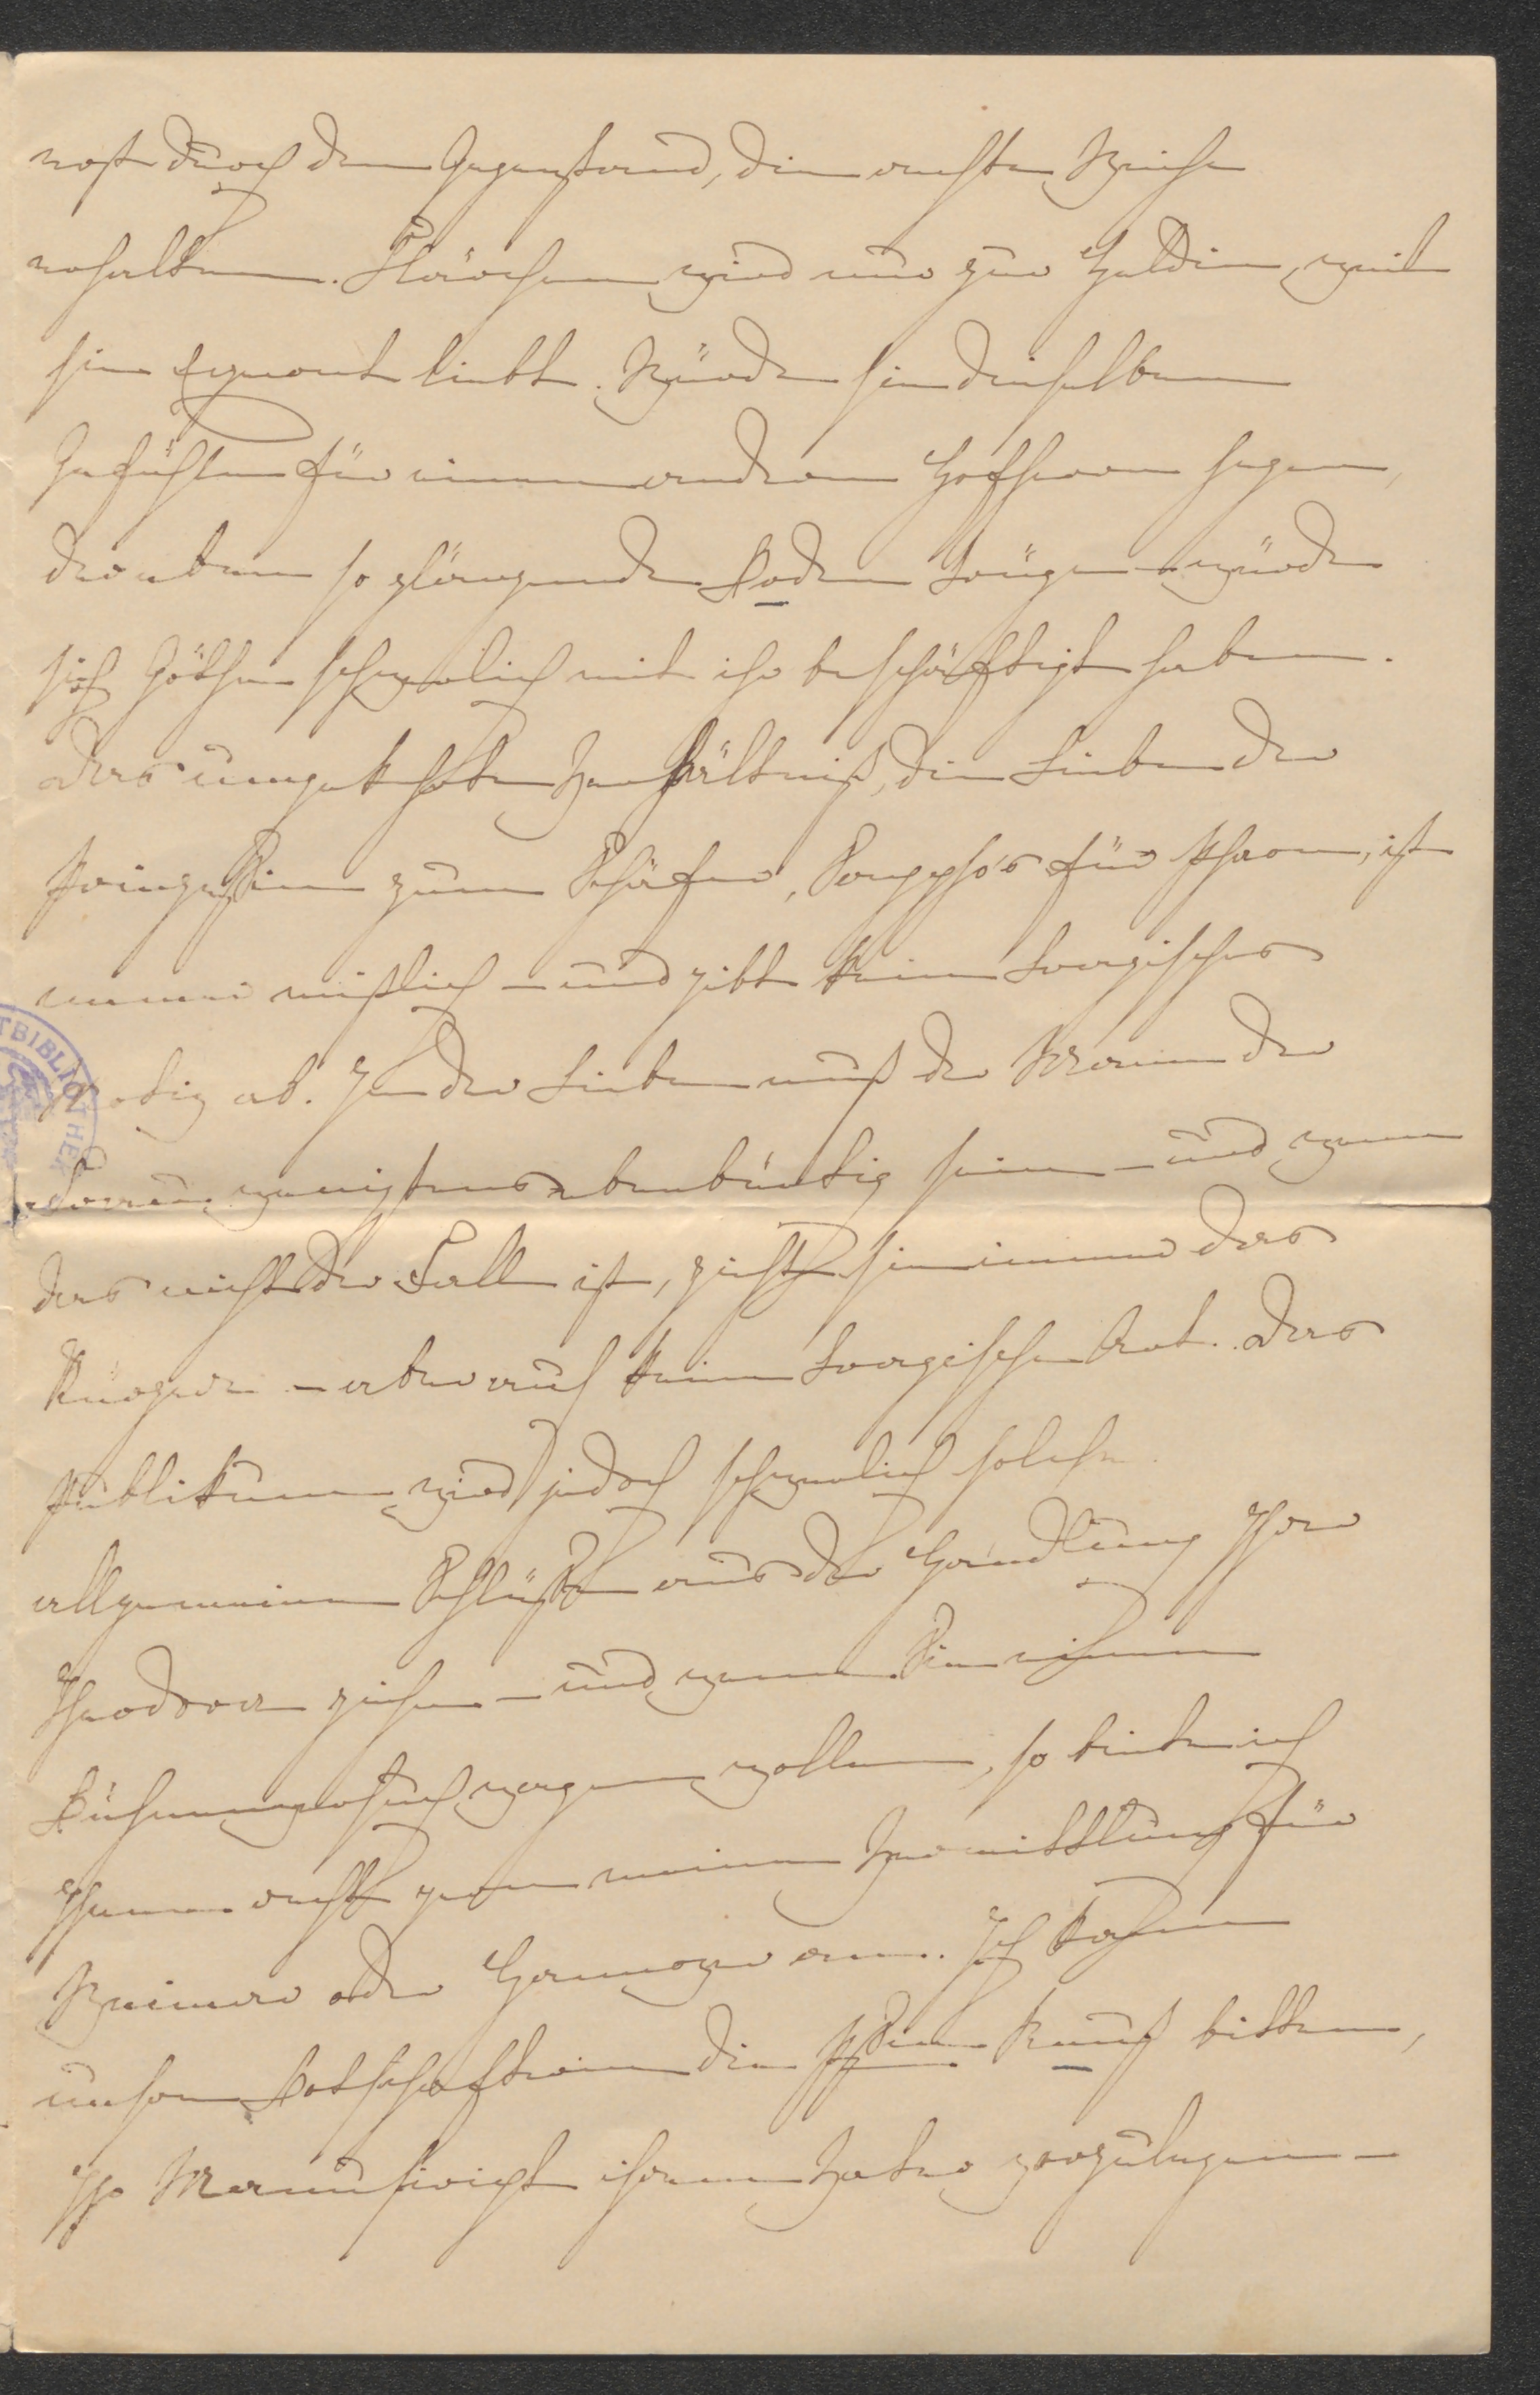 erst durch den Gegenstand, die rechte Weihe
erhalten. Klärchen wird nur zur Heldin, weil
sie Egmont liebt. Würde sie dieselben
Gefühle für einen andren Hofherrn hegen,
der eben so glänzende Kleider trüge – würde
sich Göthe schwerlich mit ihr beschäftigt haben.
Das umgekehrte Verhältniß, die Liebe der
Prinzessin zum Schäfer, Sappho's für Phaon, ist
immer mißlich – und gibt kein tragisches
Motiv ab. In der Liebe muß der Mann der
Frau wenigstens ebenbürtig sein – und wenn
das nicht der Fall ist, zieht sie immer das
Kürzere – aber auf keine tragische Art. Das
Publikum wird jedoch schwerlich solche
allgemeine Schlüße aus der Handlung Ihrer
Theodora ziehen – und wenn Sie einen
Bühnenversuch wagen wollen, so biete ich
Ihnen recht gern meine Vermittlung für
Weimar oder Hannover an. Ich kann
unsere Botschafterin die Pssin Reuß bitten,
Ihr Manuscript ihrem Vater vorzulegen –
TBIBLIOTHEK